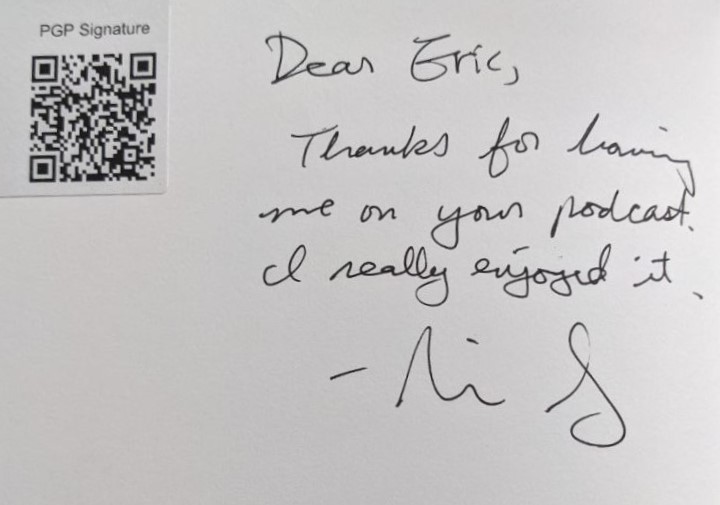 PGP Signature
Dear Eric,
Thanks for having
me on your podcast.
I really enjoyed it.
-